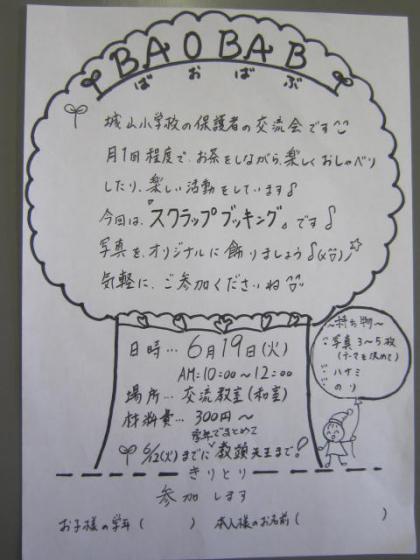 BAOBAB
ばおばぶ
城山小学校の保護者の交流会です
月1回程度で、お茶をしながら楽しくおしゃべり
したり、楽しい活動をしています♪
今回は、『スクラップブッキング』です♪
写真を、オリジナルに飾りましょう♪(^▽^)☆
気軽に、ご参加くださいね^^
日時…6月19日(火)
AM:10:00～12:00
場所…交流教室(和室)
材料費…300円～
学年でまとめて
6/12(火)までに教頭先生まで!
～持ち物～
写真3～5枚
(テーマを決めて)
ハサミ
のり
きりとり
参加します
お子様の学年( ) 本人様のお名前( )